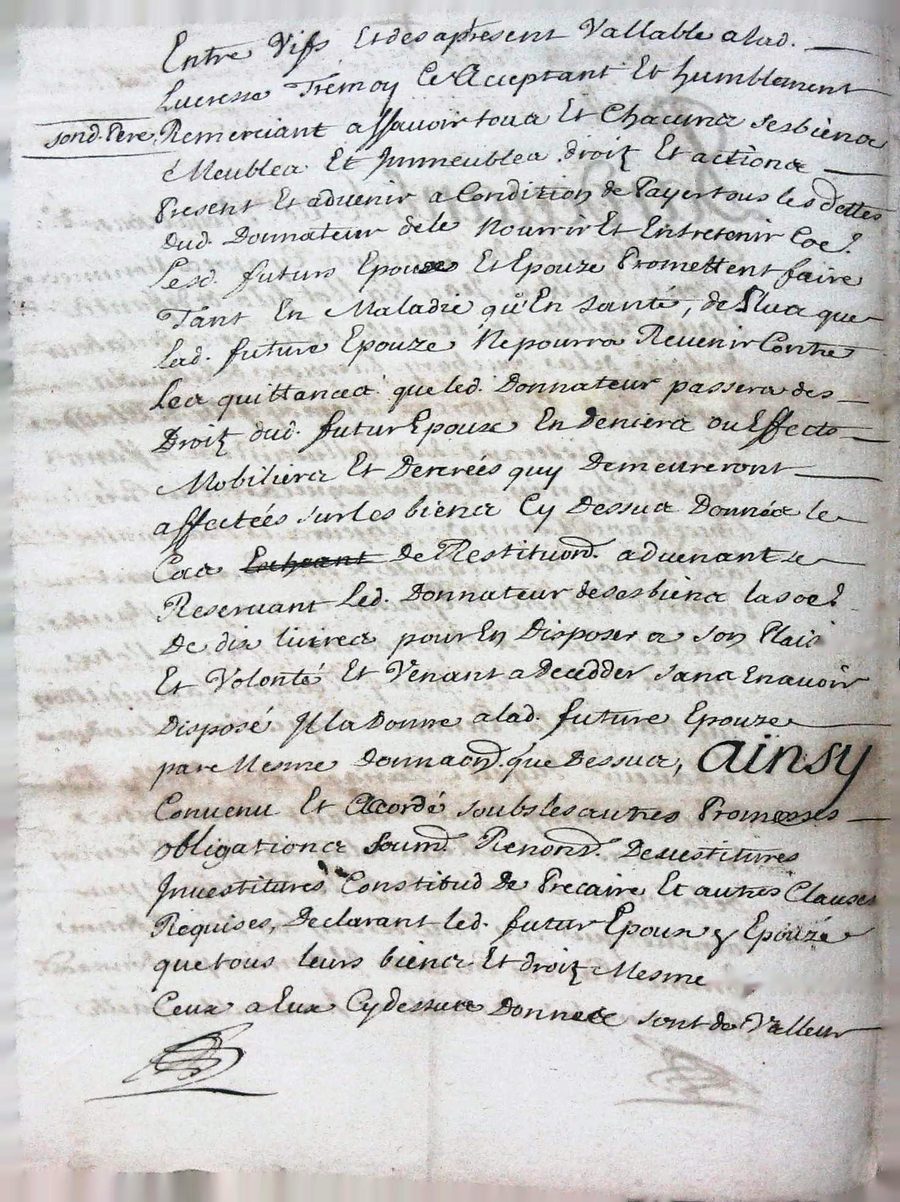 Entre Vifs Et des apresent Vallable a lad.
Lucresse Trémoy Ce Acceptant Et humblement
sond. Pere, Remerciant assavoir tous Et Chacuns ses biens
Meubles Et Jmmeubles droitz Et actions
Present Et advenir a Condition de Payer tous les dettes
dud. Donnateur de le Nourrir Et Entretenir Coe.
Lesd. futurs Epoux Et Epouze Promettent faire
Tant En Maladie qu'En santé, de Plus que
Lad. future Epouze Ne pourra Revenir Contre
Les quittances que led. Donnateur passera des
Droitz dud. futur Epoux En Deniers ou Effects
Mobiliers Et Denrées quy Demeureront
affectées sur les biens Cy Dessus Donnés le
Cas Echeant de Restituond. advenant se
Reservant Led. Donnateur de ses biens la soe.
De dix livres pour En Disposer a son Plais
Et Volonté Et Venant a Decedder sans En avoir
Disposé Jl la Donne a lad. future Epouze
pareMesme Donnaond. que Dessus, ainsy
Convenu Et Accordé soubs les autres Promesses
obligations Soumd. Renond. Devestitures
Jnvestitures Constitud de Precaire Et autres Clauses
Requises, Declarant led. futur Epoux & Epouze
que tous leurs biens Et droitz Mesme
Ceux a Eux Cydessus Donnés sont de Valleur